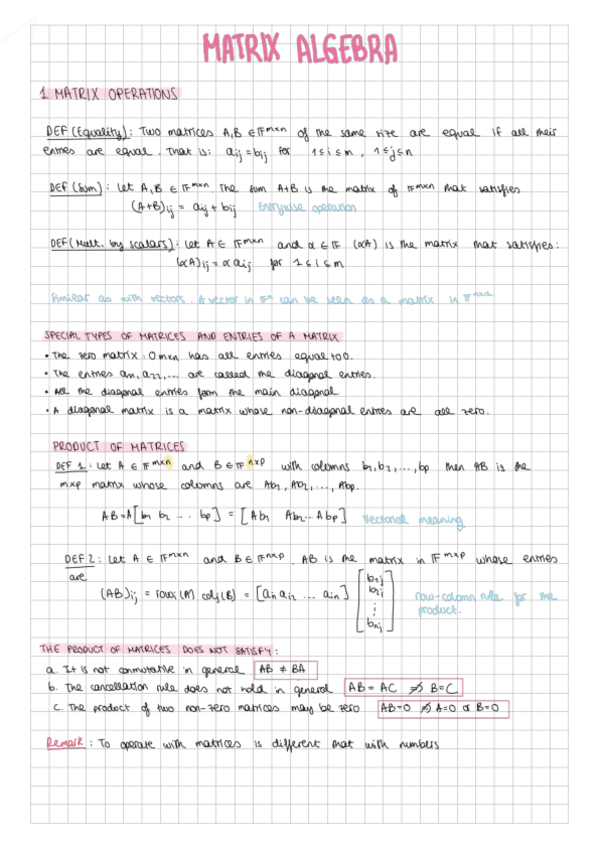 MATRIX ALGEBRA
1. MATRIX OPERATIONS
DEF (Equality): Two matrices A,B ∈ 𝔽^{m×n} of the same size are equal if all their
entries are equal. That is: a_{ij} = b_{ij} for 1≤i≤m, 1≤j≤n
DEF (Sum): Let A,B ∈ 𝔽^{m×n}. The sum A+B is the matrix of 𝔽^{m×n} that satisfies
(A+B)_{ij} = a_{ij} + b_{ij} Entrywise operation
DEF (Mult. by scalars): Let A ∈ 𝔽^{m×n} and α ∈ 𝔽 (αA) is the matrix that satisfies:
(αA)_{ij} = α a_{ij} for 1≤i≤m
Similar as with vectors. A vector in 𝔽^n can be seen as a matrix in 𝔽^{n×1}.
SPECIAL TYPES OF MATRICES AND ENTRIES OF A MATRIX
• The zero matrix: 0_{m×n} has all entries equal to 0.
• The entries a_{11}, a_{22}, ... are called the diagonal entries.
• All the diagonal entries form the main diagonal
• A diagonal matrix is a matrix whose non-diagonal entries are all zero.
PRODUCT OF MATRICES
DEF 1: Let A ∈ 𝔽^{m×n} and B ∈ 𝔽^{n×p} with columns b_1, b_2, ..., b_p then AB is the
m×p matrix whose columns are Ab_1, Ab_2, ..., Ab_p.
AB = A[b_1 b_2 ... b_p] = [Ab_1 Ab_2 ... Ab_p] Vectorial meaning
DEF 2: Let A ∈ 𝔽^{m×n} and B ∈ 𝔽^{n×p}. AB is the matrix in 𝔽^{m×p} whose entries
are
(AB)_{ij} = row_i(A) col_j(B) = [a_{i1} a_{i2} ... a_{in}] [b_{1j} b_{2j} ⋮ b_{nj}] row-column rule for the
product.
THE PRODUCT OF MATRICES DOES NOT SATISFY:
a. It is not conmutative in general AB ≠ BA
b. The cancellation rule does not hold in general AB = AC ⇏ B = C
c. The product of two non-zero matrices may be zero AB=0 ⇏ A=0 or B=0
Remark: To operate with matrices is different that with numbers